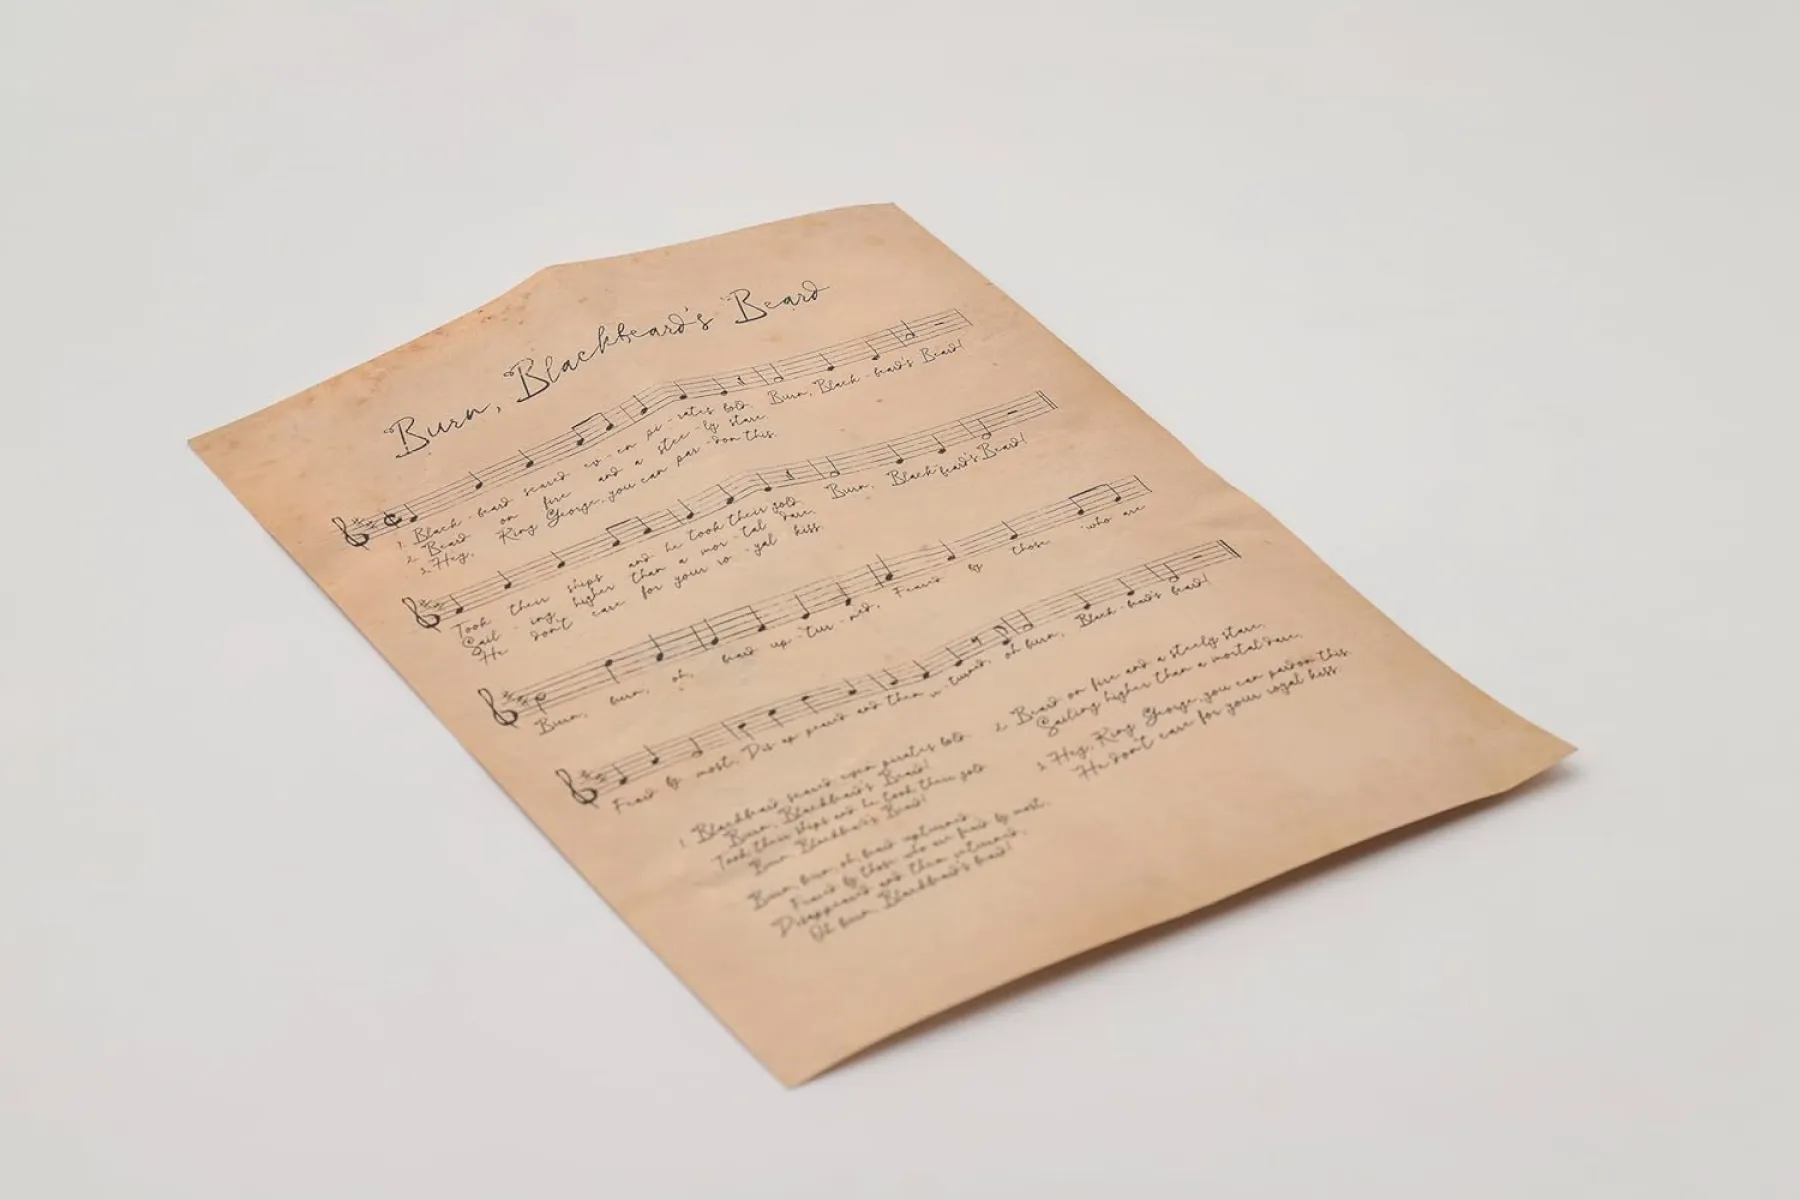 Burn, Blackbeard's Beard
1. Black - beard scared ev - en pi - rates bold. Burn, Black - beard's Beard!
2. Beard on fire and a stee - ly stare.
3. Hey, King George, you can par - don this.
Took their ships and he took their gold. Burn, Black - beard's Beard!
Sail - ing higher than a mor - tal dare.
He don't care for your ro - yal kiss.
Burn, burn, oh, beard up - tur - ned, Feared by those who are
Feard by most, Dis ap peared and then turned, oh burn, Black - beard's beard!
1. Blackbeard scared even pirates bold.
Burn, Blackbeard's Beard!
Took their ships and he took their gold
Burn, Blackbeard's Beard!
Burn, burn, oh, beard upturned,
Feard by those who are feard by most.
Disappeared and then returned,
Oh burn, Blackbeard's beard!
2. Beard on fire and a steely stare,
Sailing higher than a mortal dare,
3. Hey, King George, you can pardon this.
He don't care for your royal kiss.